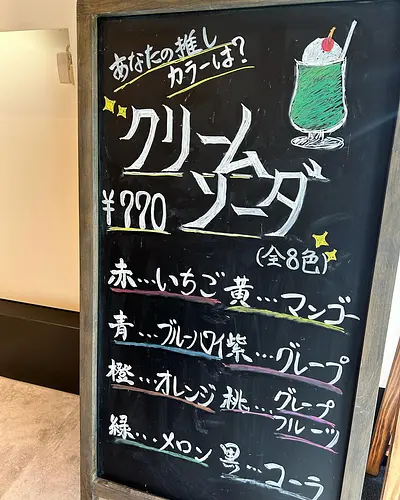 あなたの推し
カラーは?
クリーム
ソーダ
¥770
(全8色)
赤…いちご
黄…マンゴー
青…ブルーハワイ
紫…グレープ
橙…オレンジ
桃…グレープ
フルーツ
緑…メロン
黒…コーラ